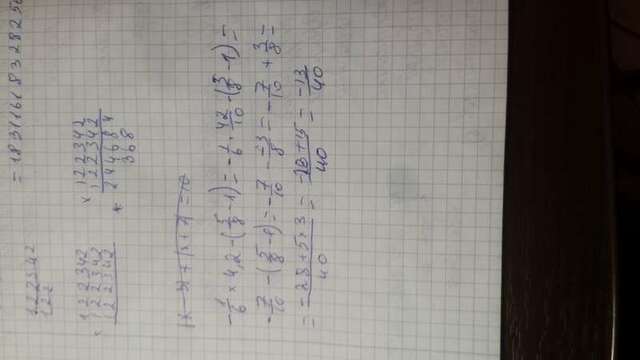 = 183116183282
122342
122
122342
× 122342
122342
× 122342
122342
244684
368
-1/6 × 4,2 - (5/8 - 1) = -1/6 × 42/10 - (5/8 - 1) =
-7/10 - (5/8 - 1) = -7/10 - -3/8 = -7/10 + 3/8 =
= -28+5×3/40 = -28+15/40 = -13/40